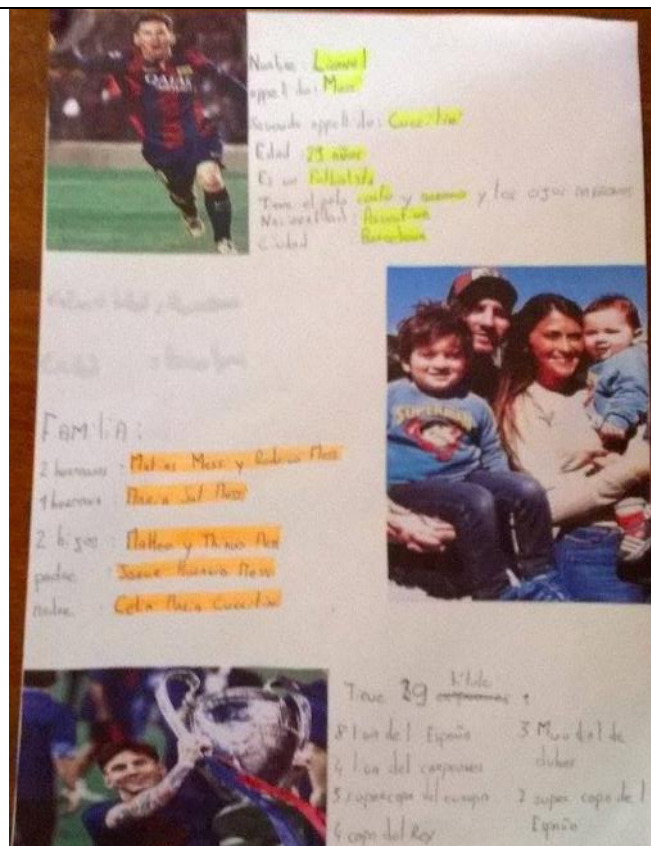 QATAR
Nombre: Lionel
appellido: Messi
Secundo appellido: Cuccitini
Edad 29 años
Es un Futbolista
Tiene el pelo corto y moreno y los ojos marrones
Nacionalidad: Argentino
Ciudad Barcelona
SUPERMAN
FAMiliA:
2 hermanos: Matias Messi y Rodrigo Messi
1 hermana: Maria Sol Messi
2 hijos: Matteo y Thiago Messi
padre Horacio Messi
madre: Celia Maria Cuccitini
Tiene 29 titulo
8 liga del España
4 liga del campeones
3 supercopa del europa
4 copa del Rey
3 Mundial de clubes
7 super copa del España